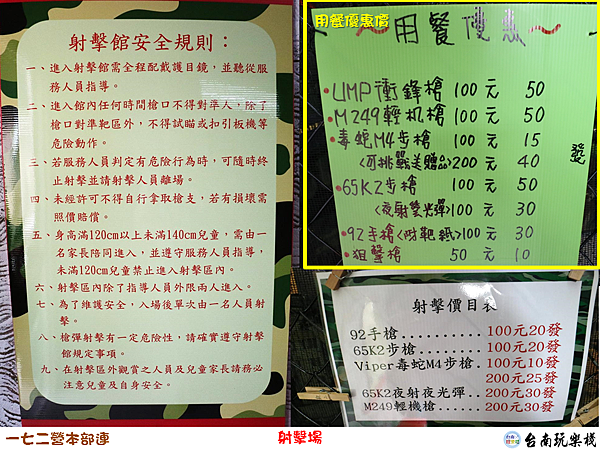 射擊館安全規則：
一、進入射擊館需全程配戴護目鏡，並聽從服
務人員指導。
二、進入館內任何時間槍口不得對準人，除了
槍口對準靶區外，不得試瞄或扣引板機等
危險動作。
三、若服務人員判定有危險行為時，可隨時終
止射擊並請射擊人員離場。
四、未經許可不得自行拿取槍支，若有損壞需
照價賠償。
五、身高滿120cm以上未滿140cm兒童，需由一
名家長陪同進入，並遵守服務人員指導，
未滿120cm兒童禁止進入射擊區內。
六、射擊區內除了指導人員外限兩人進入。
七、為了維護安全，入場後單次由一名人員射
擊。
八、槍彈射擊有一定危險性，請確實遵守射擊
館規定事項。
九、在射擊區外觀賞之人員及兒童家長請務必
注意兒童及自身安全。
用餐優惠價
～用餐優惠～
UMP衝鋒槍 100元 50
M249輕机槍 100元 50
毒蛇M4步槍 100元 15
<可挑戰美贈品>200元 40
65K2步槍 100元 50
<夜射螢光彈>100元 30
92手槍<附靶紙>100元 30
狙擊槍 50元 10
發
射擊價目表
92手槍..........100元20發
65K2步槍........100元20發
Viper毒蛇M4步槍.100元10發
200元25發
65K2夜射夜光彈..200元30發
M249輕機槍......200元30發
一七二營本部連
射擊場
台南玩樂棧